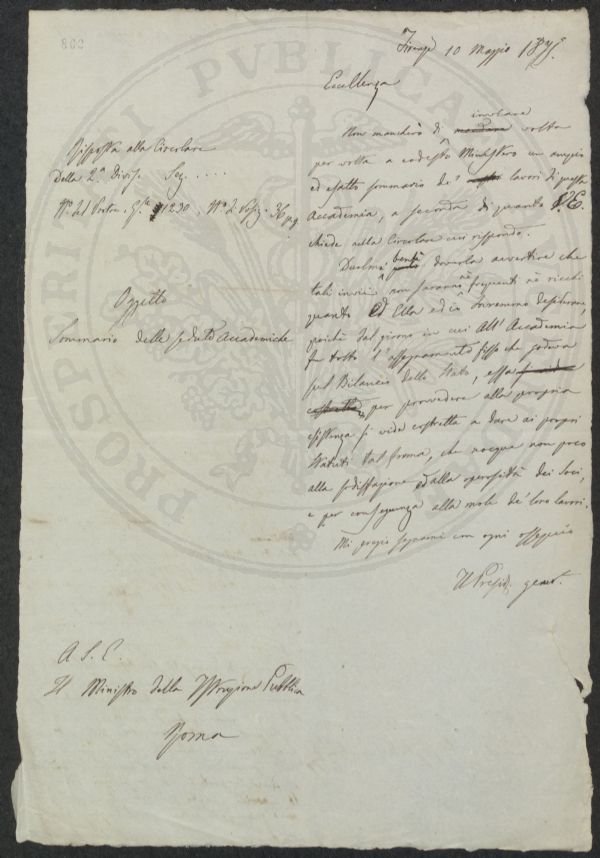 802
Firenze 10 Maggio 187
Eccellenza
Risposta alla Circolare
della 2.a Divis. Sez. . . . .
N.o di Posiz. 36
Oggetto
Sommario delle sedute Accademiche
inviare
Non mancherò di mandare volta
per volta a codesto Ministero un ampio
ed esatto sommario de' lavori di questa
Accademia, a seconda di quanto V.E.
chiede nella Circolare cui rispondo.
Duolmi bensì doverla avvertire che
tali invii non saranno nè frequenti nè ricchi
quanto ed Ella ed io bramremo desiderare,
poichè dal giorno in cui all' Accademia
fu tolto l' assegnamento fisso che godeva
sul Bilancio dello Stato, essa
costretta per provvedere alla propria
esistenza si vide costretta a dare ai propri
Statuti tal forma, che nocque non poco
alla sodisfazione ed alla operosità dei Soci,
e per conseguenza alla mole de' loro lavori.
Mi pregio segnarmi con ogni ossequio
Il Presid. gener.
A S. E.
Il Ministro della Istruzione Pubblica
Roma